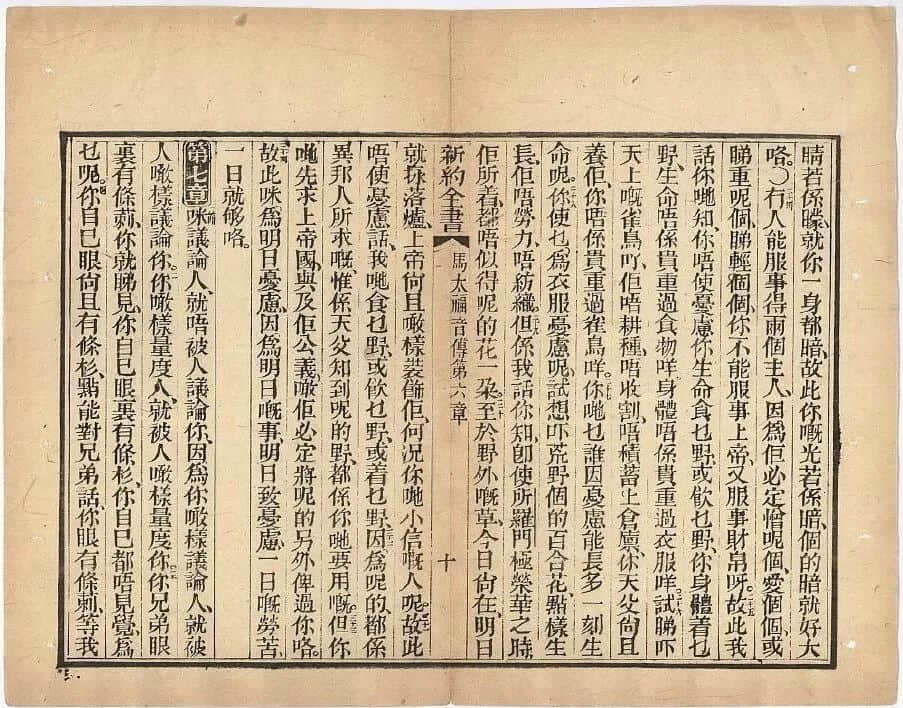 睛若係矇、就你一身都暗、故此你嘅光若係暗、個的暗就好大
咯。〇冇人能服事得兩個主人、因爲佢必定憎呢個、愛個個、或
睇重呢個、睇輕個個、你不能服事上帝、又服事財帛呀。故此我
話你哋知、你唔使憂慮你生命食乜野、或飲乜野、你身體着乜
野、生命唔係貴重過食物咩、身體唔係貴重過衣服咩、試睇吓
天上嘅雀鳥吖、佢唔耕種、唔收割、唔積蓄上倉廪、你天父尙且
養佢、你唔係貴重過雀鳥咩。你哋乜誰因憂慮能長多一刻生
命呢。你使乜爲衣服憂慮呢、試想吓荒野個的百合花、點樣生
長、佢唔勞力、唔紡織。但係我話你知、卽使所羅門極榮華之時、
佢所着都唔似得呢的花一朶。至於野外嘅草、今日尙在、明日
新約全書 馬太福音傳第六章 十
就採落爐、上帝尙且噉樣裝飾佢、何況你哋小信嘅人呢。故此
唔使憂慮話、我哋食乜野、或飲乜野、或着乜野。因爲呢的、都係
異邦人所求嘅、惟係天父知到呢的野、都係你哋要用嘅。但你
哋先求上帝國、與及佢公義、噉佢必定將呢的另外俾過你咯。
故此咪爲明日憂慮、因爲明日嘅事、明日致憂慮、一日嘅勞苦、
一日就够咯。
第七章 咪議論人、就唔被人議論你、因爲你噉樣議論人、就被
人噉樣議論你。你噉樣量度人、就被人噉樣量度你、你兄弟眼
裏有條莿、你就睇見、你自己眼裏有條杉、你自己都唔見覺、爲
乜呢。你自己眼尙且有條杉、點能對兄弟話、你眼有條莿、等我